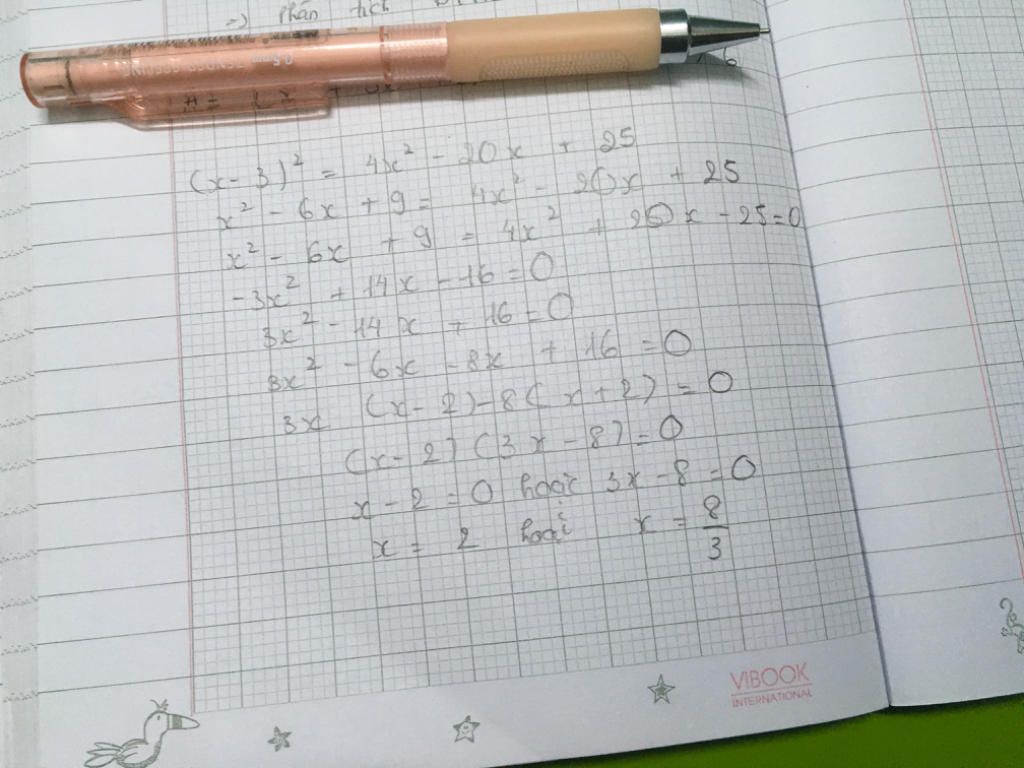 => Phân tích
0.5mm
(x - 3)² = 4x² - 20x + 25
x² - 6x + 9 = 4x² - 20x + 25
x² - 6x + 9 = 4x² + 20x - 25 = 0
-3x² + 14x - 16 = 0
3x² - 14x + 16 = 0
3x² - 6x - 8x + 16 = 0
3x (x - 2) - 8(x + 2) = 0
(x - 2) (3x - 8) = 0
x - 2 = 0 hoặc 3x - 8 = 0
x = 2 hoặc x = 8/3
VIBOOK
INTERNATIONAL